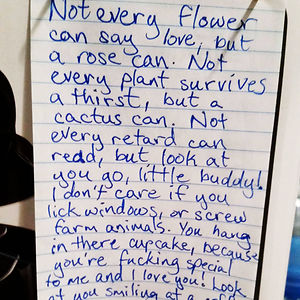 Not every flower
can say love, but
a rose can. Not
every plant survives
a thirst, but a
cactus can. Not
every retard can
read, but look at
you go, little buddy!
I don't care if you
lick windows, or screw
farm animals. You hang
in there cupcake, because
you're fucking special
to me and I love you! Look
at you smiling at a